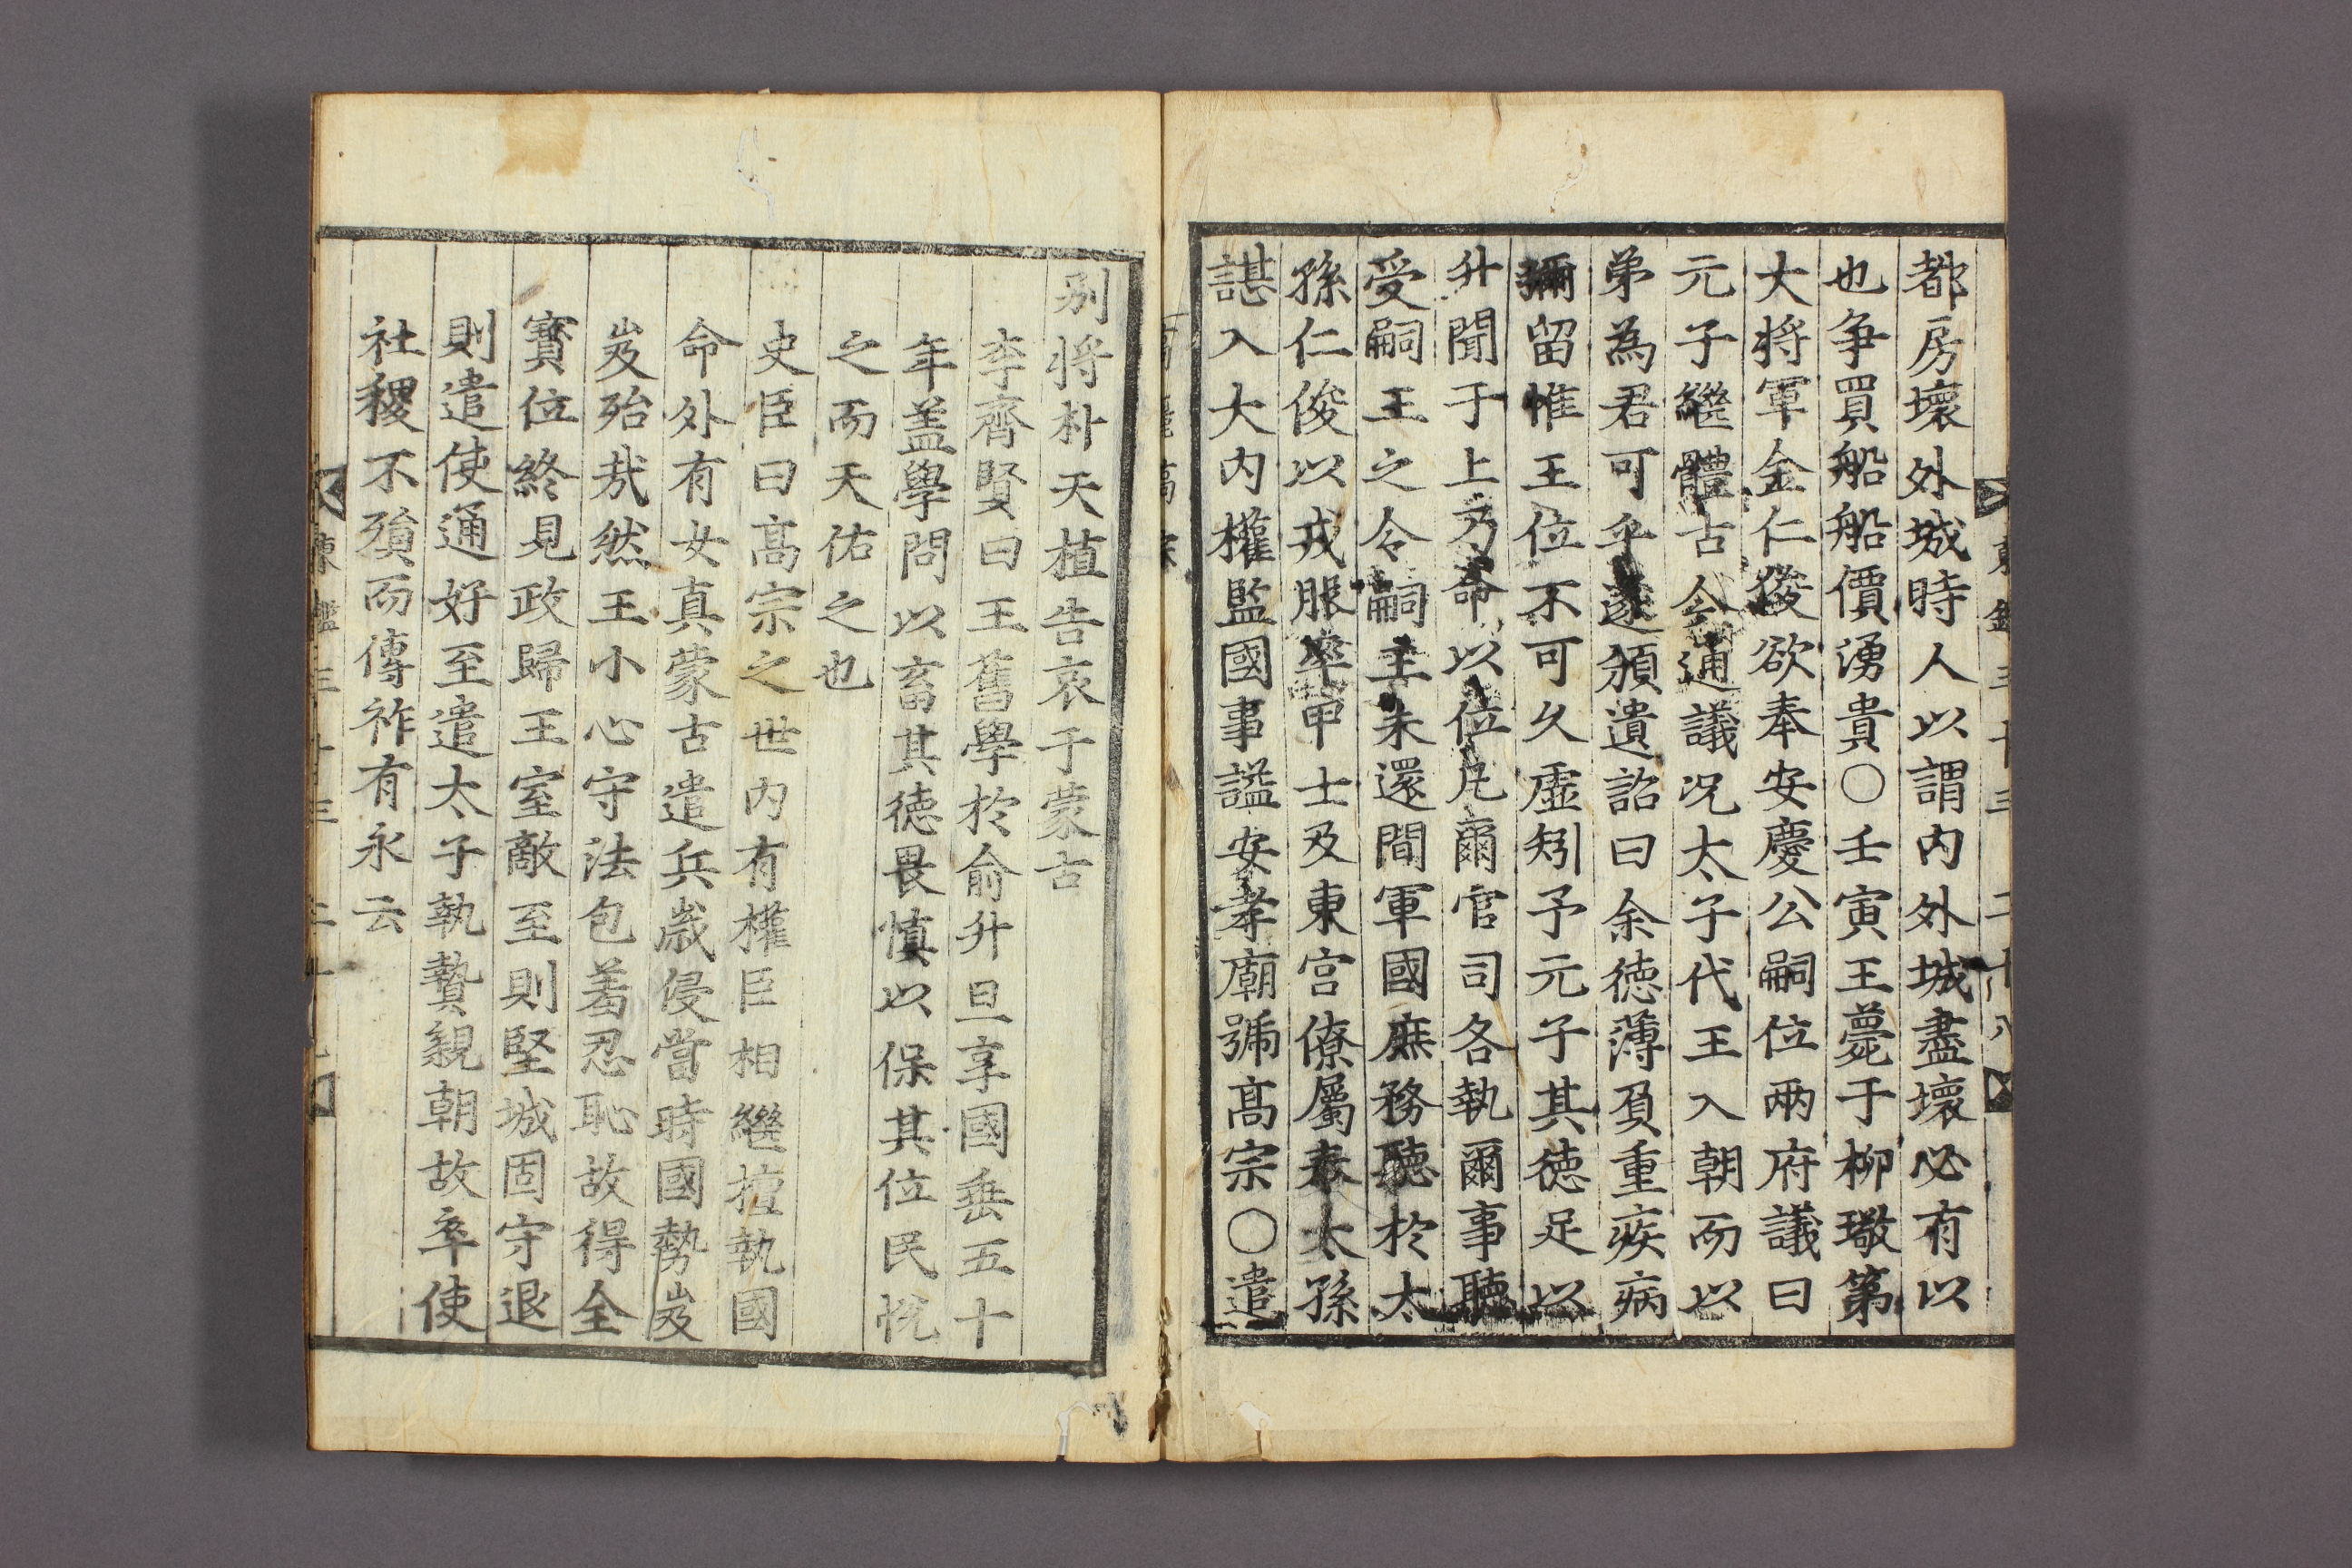 都房壞外城時人以謂内外城盡壞必有以
也爭買船船價湧貴○壬寅王薨于柳璥第
大將軍金仁俊欲奉安慶公嗣位兩府議曰
元子繼體古今通議况太子代王入朝而以
弟為君可乎遂頒遺詔曰余徳薄負重疾病
彌留惟王位不可久虛矧予元子其徳足以
升聞于上乃命以位凡爾官司各執爾事聽
受嗣王之令嗣王未還間軍國庶務聽於太
孫仁俊以戎服率甲士及東宫僚屬奉太孫
諶入大内權監國事謚安孝廟號髙宗○遣
别將朴天植告哀于蒙古
李齊賢曰王舊學於俞升旦享國垂五十
年盖學問以畜其徳畏慎以保其位民悅
之而天佑之也
史臣曰髙宗之世内有權臣相繼擅執國
命外有女真蒙古遣兵歲侵當時國勢岌
岌殆㢤然王小心守法包羞忍恥故得全
寳位終見政歸王室敵至則堅城固守退
則遣使通好至遣太子執贄親朝故卒使
社稷不殞而傳祚有永云